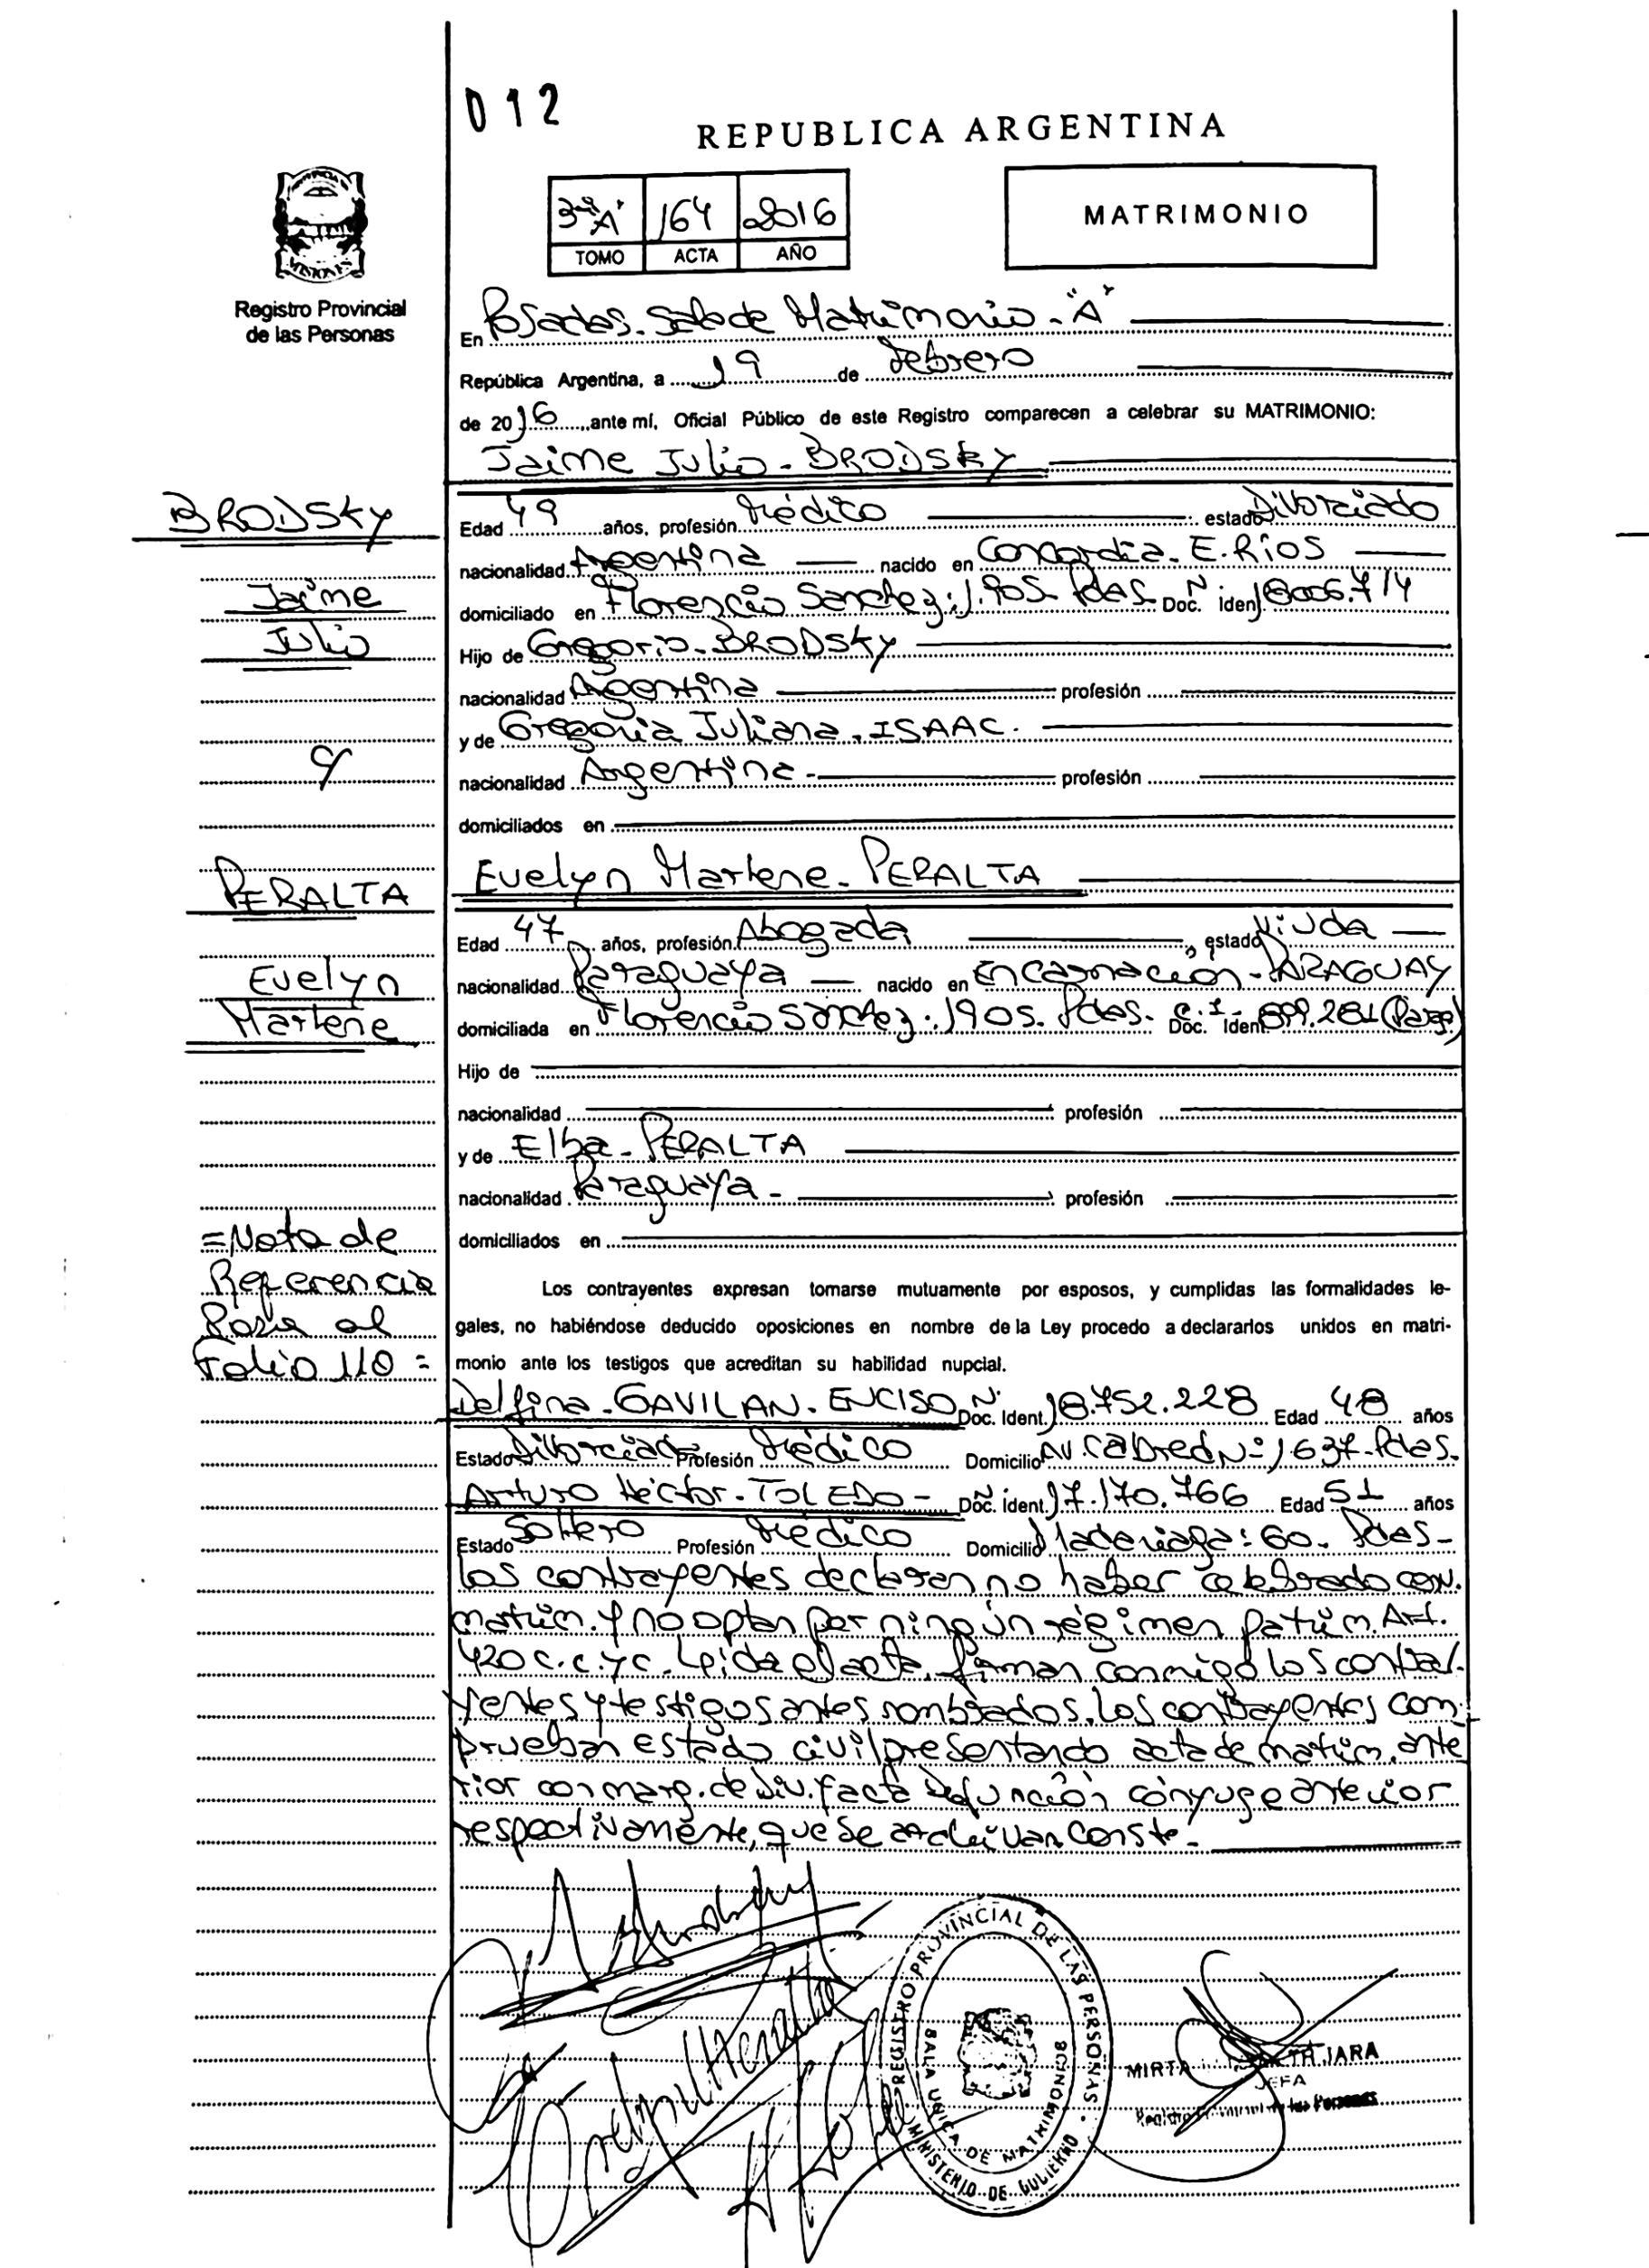 012
REPUBLICA ARGENTINA
3º "A" 164 2016
TOMO ACTA AÑO
MATRIMONIO
PROVINCIA DE
MISIONES
Registro Provincial
de las Personas
En Posadas. Sala de Matrimonio - "A"
República Argentina, a 19 de Febrero
de 2016, ante mí, Oficial Público de este Registro comparecen a celebrar su MATRIMONIO:
Jaime Julio - BRODSKY
BRODSKY
Jaime
Julio
Edad 49 años, profesión Médico estado Divorciado
nacionalidad Argentina nacido en Concordia - E. Ríos
domiciliado en Florencio Sanchez: 1.905- Pdas. Doc. N. iden 18006.714
Hijo de Gregorio - BRODSKY
nacionalidad Argentina profesión
y de Gregoria Juliana. ISAAC.
nacionalidad Argentina - profesión
domiciliados en
c/
PERALTA
Evelyn
Marlene
Evelyn Marlene - PERALTA
Edad 47 años, profesión Abogada, estado Viuda
nacionalidad Paraguaya nacido en Encarnación - PARAGUAY
domiciliada en Florencio Sánchez: 1905. Pdas. Doc. C.I. Ident 899.281 (Parag)
Hijo de
nacionalidad profesión
y de Elba - PERALTA
nacionalidad Paraguaya - profesión
domiciliados en
=Nota de
Referencia
Pasa al
Folio 110 =
Los contrayentes expresan tomarse mutuamente por esposos, y cumplidas las formalidades le-
gales, no habiéndose deducido oposiciones en nombre de la Ley procedo a declararlos unidos en matri-
monio ante los testigos que acreditan su habilidad nupcial.
Delfina - GAVILAN - ENCISO Doc. N. Ident. 18.752.228 Edad 48 años
Estado Divorciada Profesión Médico Domicilio Av. Cabred Nº 1637- Pdas.
Arturo Héctor - TOLEDO - Doc. N. ident. 17.170.766 Edad 51 años
Estado Soltero Profesión Médico Domicilio Madariaga: 60. Pdas-
los contrayentes declaran no haber celebrado conv.
matrim. y no optan por ningún régimen patrim. Art.
420 c.c. y c. Leída el acta, firman conmigo los contra-
yentes y testigos antes nombrados. Los contrayentes com-
prueban estado civil presentando acta de matrim. ante
rior con marg. de div. y acta defunción cónyuge anterior
respectivamente, que se archivan. Conste.-
REGISTRO PROVINCIAL DE LAS PERSONAS
SALA UNICA DE MATRIMONIOS
MINISTERIO DE GOBIERNO
MIRTA JARA
JEFA
Registro Provincial de las Personas